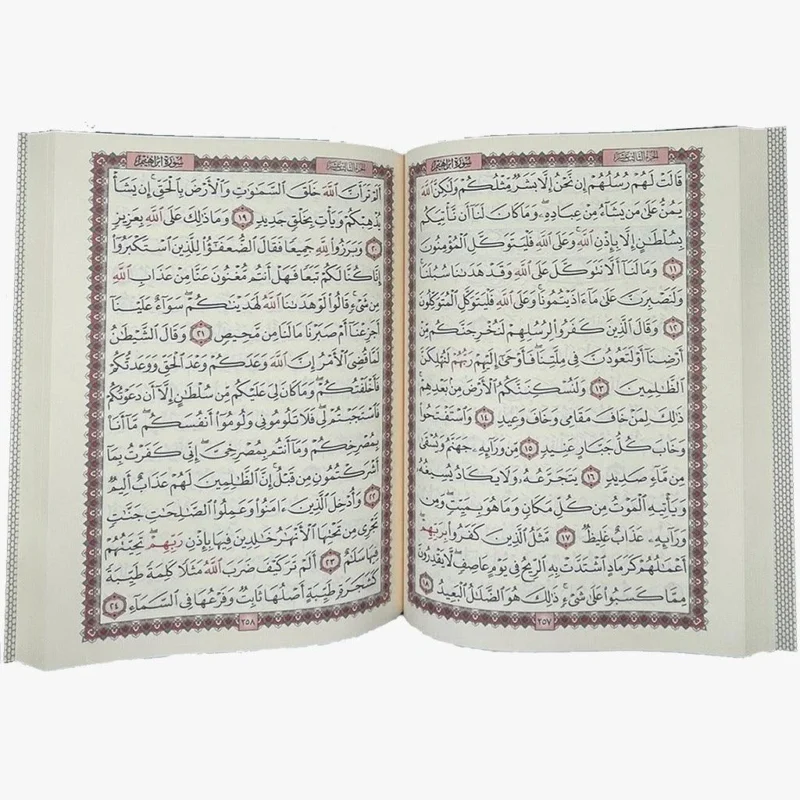 الجزء الثالث عشر
سورة إبراهيم
قَالَتْ لَهُمْ رُسُلُهُمْ إِن نَّحْنُ إِلَّا بَشَرٌ مِّثْلُكُمْ وَلَٰكِنَّ ٱللَّهَ
يَمُنُّ عَلَىٰ مَن يَشَآءُ مِنْ عِبَادِهِۦ وَمَا كَانَ لَنَآ أَن نَّأْتِيَكُم
بِسُلْطَٰنٍ إِلَّا بِإِذْنِ ٱللَّهِ وَعَلَى ٱللَّهِ فَلْيَتَوَكَّلِ ٱلْمُؤْمِنُونَ
١١ وَمَا لَنَآ أَلَّا نَتَوَكَّلَ عَلَى ٱللَّهِ وَقَدْ هَدَىٰنَا سُبُلَنَا
وَلَنَصْبِرَنَّ عَلَىٰ مَآ ءَاذَيْتُمُونَا وَعَلَى ٱللَّهِ فَلْيَتَوَكَّلِ ٱلْمُتَوَكِّلُونَ
١٢ وَقَالَ ٱلَّذِينَ كَفَرُوا۟ لِرُسُلِهِمْ لَنُخْرِجَنَّكُم مِّنْ
أَرْضِنَآ أَوْ لَتَعُودُنَّ فِى مِلَّتِنَا فَأَوْحَىٰٓ إِلَيْهِمْ رَبُّهُمْ لَنُهْلِكَنَّ
ٱلظَّٰلِمِينَ ١٣ وَلَنُسْكِنَنَّكُمُ ٱلْأَرْضَ مِنۢ بَعْدِهِمْ
ذَٰلِكَ لِمَنْ خَافَ مَقَامِى وَخَافَ وَعِيدِ ١٤ وَٱسْتَفْتَحُوا۟
وَخَابَ كُلُّ جَبَّارٍ عَنِيدٍ ١٥ مِّن وَرَآئِهِۦ جَهَنَّمُ وَيُسْقَىٰ
مِن مَّآءٍ صَدِيدٍ ١٦ يَتَجَرَّعُهُۥ وَلَا يَكَادُ يُسِيغُهُۥ
وَيَأْتِيهِ ٱلْمَوْتُ مِن كُلِّ مَكَانٍ وَمَا هُوَ بِمَيِّتٍ وَمِن
وَرَآئِهِۦ عَذَابٌ غَلِيظٌ ١٧ مَّثَلُ ٱلَّذِينَ كَفَرُوا۟ بِرَبِّهِمْ
أَعْمَٰلُهُمْ كَرَمَادٍ ٱشْتَدَّتْ بِهِ ٱلرِّيحُ فِى يَوْمٍ عَاصِفٍ لَّا يَقْدِرُونَ
مِمَّا كَسَبُوا۟ عَلَىٰ شَىْءٍ ذَٰلِكَ هُوَ ٱلضَّلَٰلُ ٱلْبَعِيدُ ١٨
٢٥٧
الجزء الثالث عشر
سورة إبراهيم
أَلَمْ تَرَ أَنَّ ٱللَّهَ خَلَقَ ٱلسَّمَٰوَٰتِ وَٱلْأَرْضَ بِٱلْحَقِّ إِن يَشَأْ
يُذْهِبْكُمْ وَيَأْتِ بِخَلْقٍ جَدِيدٍ ١٩ وَمَا ذَٰلِكَ عَلَى ٱللَّهِ بِعَزِيزٍ
٢٠ وَبَرَزُوا۟ لِلَّهِ جَمِيعًا فَقَالَ ٱلضُّعَفَٰٓؤُا۟ لِلَّذِينَ ٱسْتَكْبَرُوٓا۟
إِنَّا كُنَّا لَكُمْ تَبَعًا فَهَلْ أَنتُم مُّغْنُونَ عَنَّا مِنْ عَذَابِ ٱللَّهِ
مِن شَىْءٍ قَالُوا۟ لَوْ هَدَىٰنَا ٱللَّهُ لَهَدَيْنَٰكُمْ سَوَآءٌ عَلَيْنَآ
أَجَزِعْنَآ أَمْ صَبَرْنَا مَا لَنَا مِن مَّحِيصٍ ٢١ وَقَالَ ٱلشَّيْطَٰنُ
لَمَّا قُضِىَ ٱلْأَمْرُ إِنَّ ٱللَّهَ وَعَدَكُمْ وَعْدَ ٱلْحَقِّ وَوَعَدتُّكُمْ
فَأَخْلَفْتُكُمْ وَمَا كَانَ لِىَ عَلَيْكُم مِّن سُلْطَٰنٍ إِلَّآ أَن دَعَوْتُكُمْ
فَٱسْتَجَبْتُمْ لِى فَلَا تَلُومُونِى وَلُومُوٓا۟ أَنفُسَكُم مَّآ أَنَا۠
بِمُصْرِخِكُمْ وَمَآ أَنتُم بِمُصْرِخِىَّ إِنِّى كَفَرْتُ بِمَآ
أَشْرَكْتُمُونِ مِن قَبْلُ إِنَّ ٱلظَّٰلِمِينَ لَهُمْ عَذَابٌ أَلِيمٌ
٢٢ وَأُدْخِلَ ٱلَّذِينَ ءَامَنُوا۟ وَعَمِلُوا۟ ٱلصَّٰلِحَٰتِ جَنَّٰتٍ
تَجْرِى مِن تَحْتِهَا ٱلْأَنْهَٰرُ خَٰلِدِينَ فِيهَا بِإِذْنِ رَبِّهِمْ تَحِيَّتُهُمْ
فِيهَا سَلَٰمٌ ٢٣ أَلَمْ تَرَ كَيْفَ ضَرَبَ ٱللَّهُ مَثَلًا كَلِمَةً طَيِّبَةً
كَشَجَرَةٍ طَيِّبَةٍ أَصْلُهَا ثَابِتٌ وَفَرْعُهَا فِى ٱلسَّمَآءِ ٢٤
٢٥٨